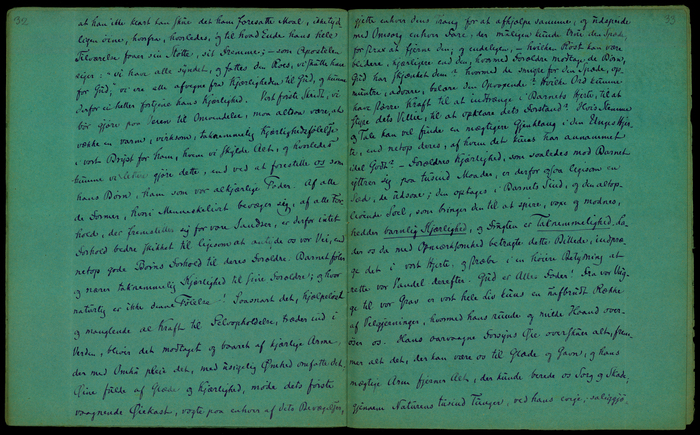 32
at han ikke heart han skue det ham foresatte Maal,
hvorfra, hvorledes, og til hvad Ende hans hele
Tilværelse faaer sin Støtte, sit Fremme; – som Apostelen
siger: "vi have alle syndet, og fattes den Roes, vi skulde have
for Gud," vi ere alle afvegne fra Kjærligheden til Gud, og kunne
derfor ei heller fortjene hans Kjærlighed. Vort første Skridt, vi
bør gjøre paa Veien til Omvendelse, maa altsaa være, at
vække en varm, virksom, taknemmelig Kjærlighedsfølelse
i vort Bryst for ham, hvem vi skylde Alt, og hvorledes
kunne vi bedre gjøre dette, end ved at forestille os som
hans Børn, ham som vor alkjærlige Fader. Af alle
de Former, hvori Menneskelivet bevæger sig, af alle For-
hold, der fremstille sig for vore Sandser, er derfor intet
Forhold bedre skikket til ligesom at antyde os vor Vei, end
netop gode Børns Forhold til deres Forældre. Barnet føler
og nærer taknemmelig Kjærlighed til sine Forældre; og hvor
naturlig er ikke denne Følelse! Saasnart det, hjælpeløst
og manglende al Kraft til Selvopholdelse, træder ind i
Verden, bliver det modtaget og baaret af kjærlige Arme,
der med Omhu pleie det, med usigelig Ømhed omfatte det.
Øine fulde af Glæde og Kjærlighed, møde dets første
vaagnende Øiekast, vogte paa enhver af dets Bevægelser,
33
gjette enhver dets Trang for at afhjælpe samme, og udspeide
med Omsorg enhver Fare, der muligen kunde true den Spæde,
for strax at fjerne den; og endeligen, – hvilken Røst kan være
blidere, kjærligere end den, hvormed Forældre modtage de Børn,
Gud har skjænket dem? hvormed de sørge for den Spæde, op-
muntre, advare, belære den Opvoxende? Hvilke Ord kunne
have større Kraft til at indtrænge i Barnets Hjerte, til at
styre dets Villie, til at opklare dets Forstand? Hvis Stemme
og Tale kan vel finde en mægtigere Gjenklang i den Unges Hjer-
te, end netop deres, af hvem det kuns har annammet
idel Godt? – Forældres Kjærlighed, som saaledes mod Barnet
yttrer sig paa tusind Maader, er derfor ogsaa ligesom en
Sæd, de udsaae; den optages i Barnets Sind, og den altop-
livende Soel, som bringer den til at spire, voxe og modnes,
hedder barnlig Kjærlighed, og Frugten er Taknemmelighed. La-
der os da med Opmærksomhed betragte dette Billede, indpræ-
ge det i vort Hjerte, og stræbe i en høiere Betydning at
rette vor Vandel derefter. Gud er Alles Fader! Fra vor Vug-
ge til vor Grav er vort hele Liv kuns en uafbrudt Række
af Velgjerninger, hvormed hans runde og milde Haand over-
øser os. Hans aarvaagne Forsyns Øie overskuer alt, frem-
mer alt det, der kan være os til Glæde og Gavn, og hans
mægtige Arm fjerner Alt, der kunde berede os Sorg og Skade,
gjennem Naturens tusind Tunger, ved hans evige, saliggjø-